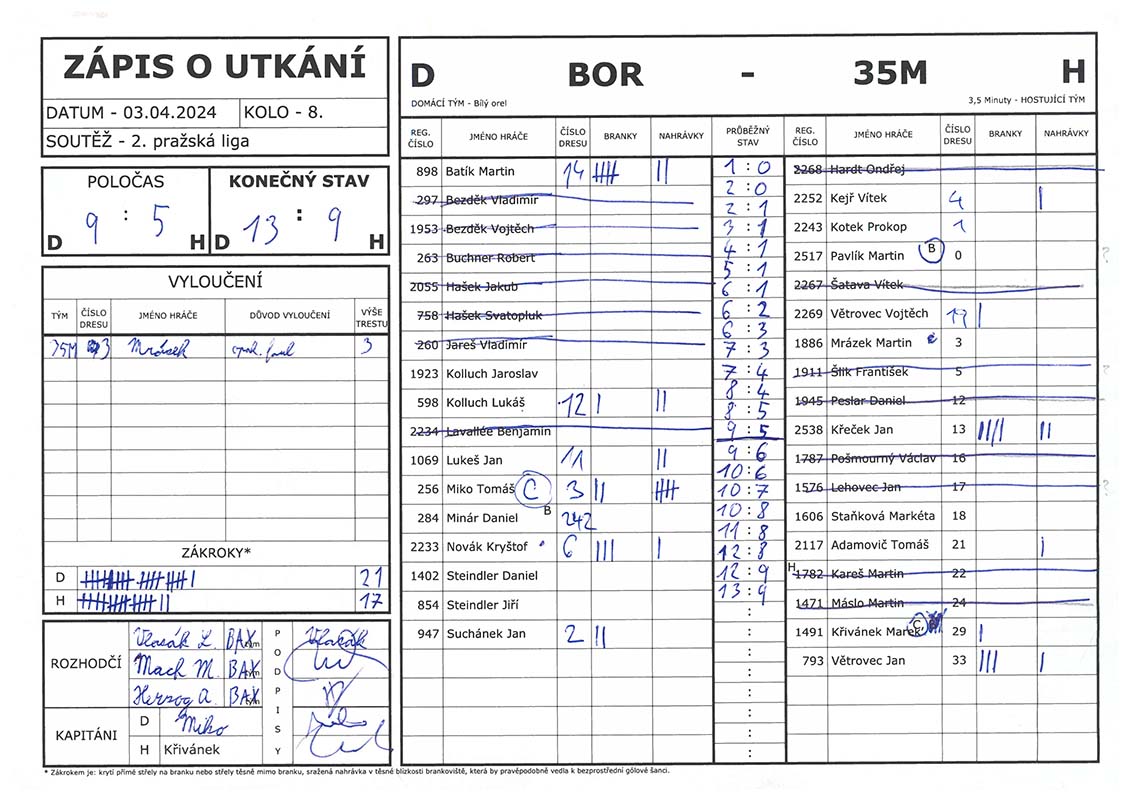 ZÁPIS O UTKÁNÍ
DATUM - 03.04.2024 KOLO - 8.
SOUTĚŽ - 2. pražská liga
POLOČAS KONEČNÝ STAV
9 : 5 13 : 9
D H D H
VYLOUČENÍ
TÝM ČÍSLO DRESU JMÉNO HRÁČE DŮVOD VYLOUČENÍ VÝŠE TRESTU
35M 3 Mrázek faul 3
ZÁKROKY*
D 21
H 17
ROZHODČÍ
Vlasák L. BAX
Mach M. BAX
Herzog A. BAX
PODPISY
KAPITÁNI
D Miko
H Křivánek
D BOR - 35M H
DOMÁCÍ TÝM - Bílý orel 3,5 Minuty - HOSTUJÍCÍ TÝM
REG. ČÍSLO JMÉNO HRÁČE ČÍSLO DRESU BRANKY NAHRÁVKY
898 Batík Martin 14
297 Bezděk Vladimír
1953 Bezděk Vojtěch
263 Buchner Robert
2055 Hašek Jakub
758 Hašek Svatopluk
260 Jareš Vladimír
1923 Kolluch Jaroslav
598 Kolluch Lukáš 12
2234 Lavallée Benjamin
1069 Lukeš Jan 11
256 Miko Tomáš C 3
284 Minár Daniel B 242
2233 Novák Kryštof 6
1402 Steindler Daniel
854 Steindler Jiří
947 Suchánek Jan 2
PRŮBĚŽNÝ STAV
1 : 0
2 : 0
2 : 1
3 : 1
4 : 1
5 : 1
6 : 1
6 : 2
6 : 3
7 : 3
7 : 4
8 : 4
8 : 5
9 : 5
9 : 6
10 : 6
10 : 7
10 : 8
11 : 8
12 : 8
12 : 9
13 : 9
REG. ČÍSLO JMÉNO HRÁČE ČÍSLO DRESU BRANKY NAHRÁVKY
2268 Hardt Ondřej
2252 Kejř Vítek 4
2243 Kotek Prokop 1
2517 Pavlík Martin B 0
2267 Šatava Vítek
2269 Větrovec Vojtěch
1886 Mrázek Martin 3
1911 Šlik František 5
1945 Peslar Daniel 12
2538 Křeček Jan 13
1787 Pošmourný Václav 16
1576 Lehovec Jan 17
1606 Staňková Markéta 18
2117 Adamovič Tomáš 21
H 1782 Kareš Martin 22
1471 Máslo Martin 24
1491 Křivánek Marek C 29
793 Větrovec Jan 33
* Zákrokem je: krytí přímé střely na branku nebo střely těsně mimo branku, sražená nahrávka v těsné blízkosti brankoviště, která by pravěpodobně vedla k bezprostřední gólové šanci.